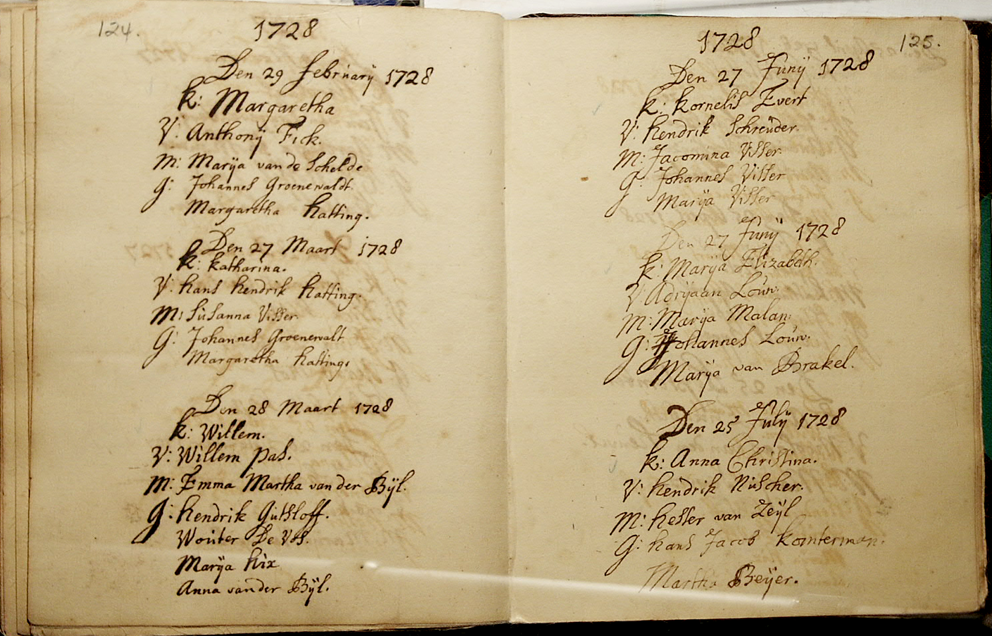 124.
1728
Den 29 februarij 1728
k: Margaretha
V: Anthonij Fick.
M: Marÿa van de Schelde
G: Johannes Groenewaldt
Margaretha hatting.
Den 27 Maart 1728
k: katharina.
V: hans hendrik hatting.
M: Susanna Visser
G: Johannes Groenewalt
Margaretha hatting
Den 28 Maart 1728
k: Willem.
V: Willem pas.
M: Emma Martha van der Bÿl.
G: hendrik Gutsloff.
Wouter De Vos.
Marÿa hix
Anna van der Bÿl.
125.
1728
Den 27 Junÿ 1728
k: kornelis Evert
V: hendrik Schreuder.
M: Jacomina Visser
G: Johannes Visser
Marÿa Visser
Den 27 Junÿ 1728
k: Marÿa Elizabeth.
V: Adrÿaan Louw.
M: Marÿa Malan
G: Johannes Louw.
Marÿa van Brakel.
Den 25 Julÿ 1728
k: Anna Christina.
V: hendrik Nuscher.
M: hester van Zeÿl
G: hans Jacob konterman.
Martha Beÿer.